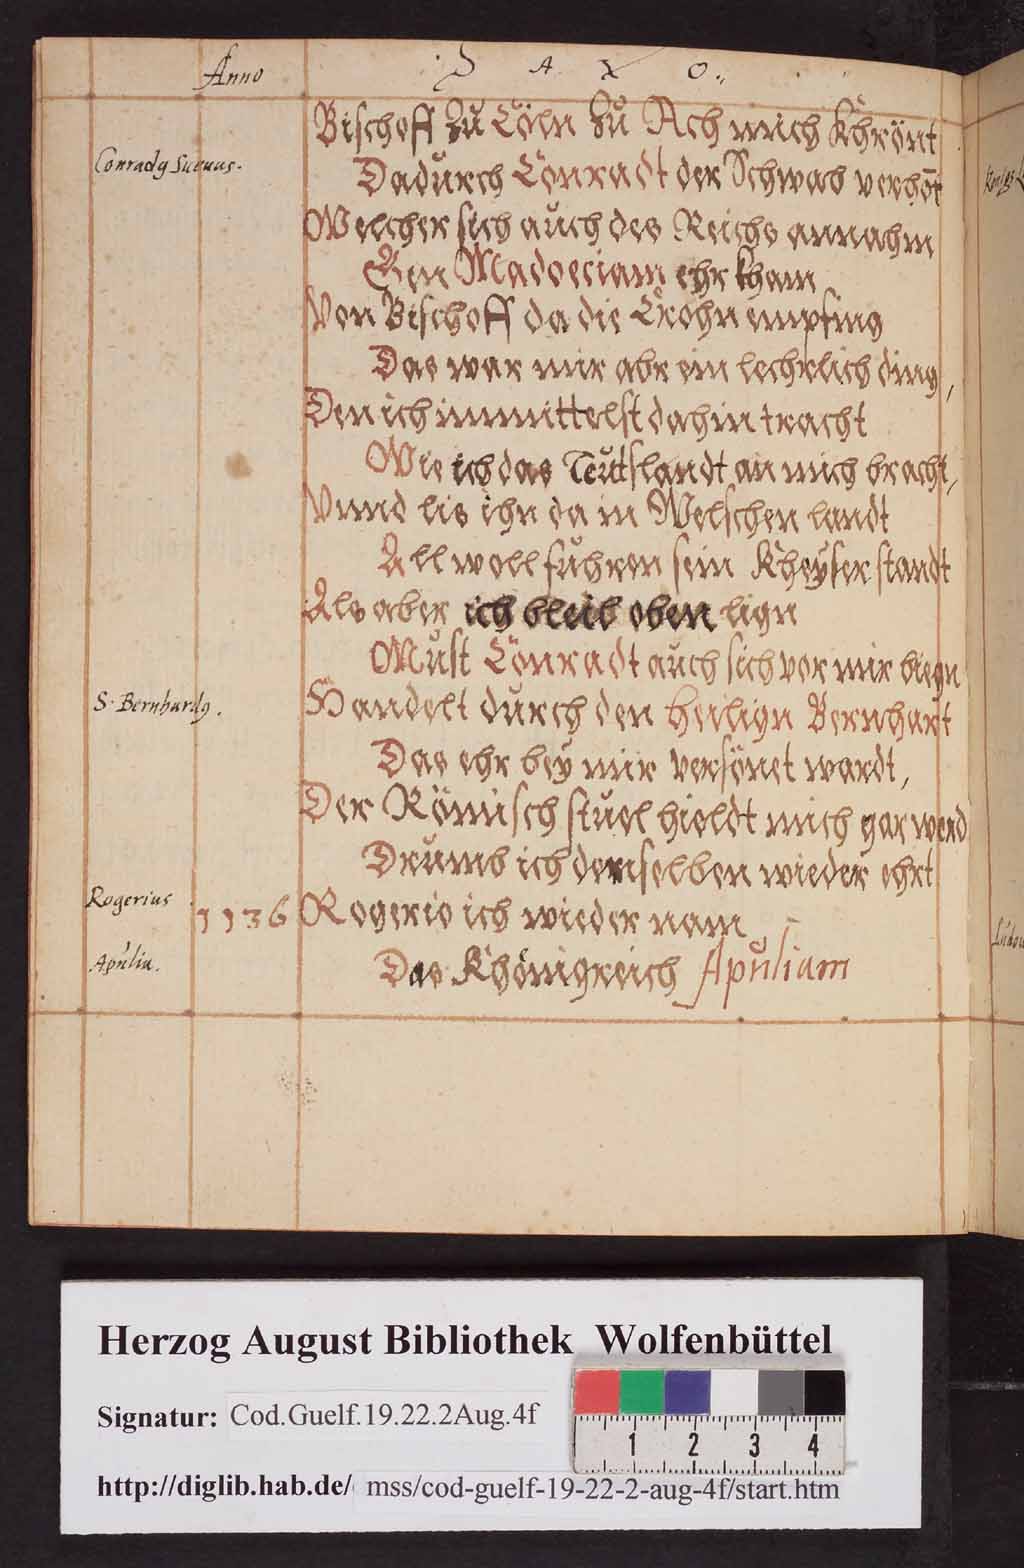 Anno
S A X O.
Bischoff zu Cöln zu Ach mich Khrönt
Conradg Sueuus.
Dadurch Conradt der Schwab verhöt
Welcher sich auch des Reichs annahm
Gen Madoeciam ehr kham
Von Bischoff da die Crohn empfing
Das war mir abr ein lechrlich ding,
Den ich immittelst dahin tracht
Wie ich das Teutslandt an mich bracht,
Vnnd lis ihn da in Welschen landt
All woll fuhren sein Kheyser standt
Als aber ich bleib oben lign
Must Conradt auch sich vor mir biegn
S. Bernhardg.
Handelt durch den heilign Bernhart
Das ehr bey mir versönet wardt,
Der Römisch stuel hieldt mich gar werd
Drumb ich demselben wieder ehrt
Rogerius
1136 Rogerio ich wieder nam
Apulia.
Das Khönigreich Apuliam
Herzog August Bibliothek Wolfenbüttel
Signatur: Cod.Guelf.19.22.2Aug.4f
1 2 3 4
http://diglib.hab.de/ mss/cod-guelf-19-22-2-aug-4f/start.htm